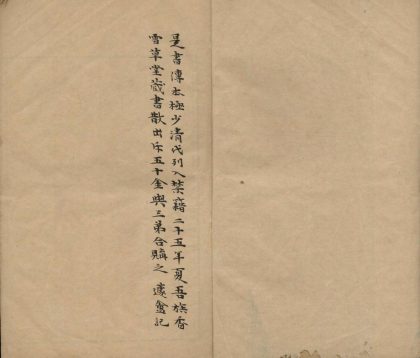 是書傳本極少清代列入禁籍二十五年夏吾族香
雪草堂藏書散出斥五十金與三弟合購之 盦記